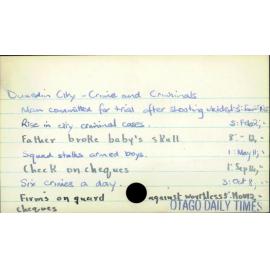 Dunedin City - Crime and Criminals
Man committed for trial after shooting
Rise in city criminal cases. 5: Feb 2;
Father broke baby's skull 8: - 12,
Squad stalks armed boys. 1: May 11,
Check on cheques 1: Sep 14,
Six crimes a day. 3: Oct 8,
Firms on guard against worthless
cheques
OTAGO DAILY TIMES